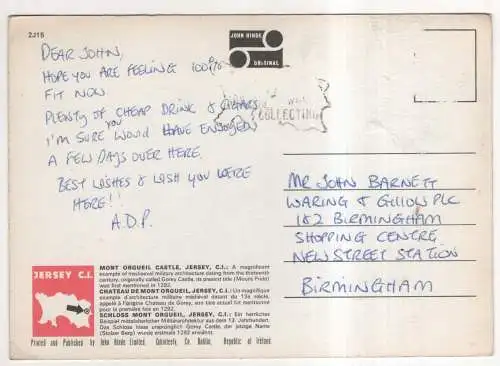 2J15
JOHN HINDE
ORIGINAL
DEAR JOHN,
HOPE YOU ARE FEELING 100%
FIT NOW.
PLENTY OF CHEAP DRINK & CIGARS
I'M SURE YOU WOULD HAVE ENJOYED
A FEW DAYS OVER HERE.
BEST WISHES & WISH YOU WERE
HERE!!
A.D.P.
COLLECTING
MR JOHN BARNETT
WARING & GILLOW PLC
1&2 BIRMINGHAM
SHOPPING CENTRE
NEW STREET STATION
BIRMINGHAM
JERSEY C.I.
MONT ORGUEIL CASTLE, JERSEY, C.I.: A magnificent
example of mediaeval military architecture dating from the thirteenth
century, originally called Gorey Castle, its present title (Mount Pride)
was first mentioned in 1282.
CHATEAU DE MONT ORGUEIL, JERSEY, C.I.: Un magnifique
example d'architecture militaire médiéval datant du 13e siècle,
appelé à l'origine Chateau de Gorey, son titre actuel fut mentionné
pour la première fois en 1282.
SCHLOSS MONT ORGUEIL, JERSEY, C.I.: Ein herrliches
Beispiel mittelalterlicher Militärarchitektur aus dem 13. Jahrhundert.
Das Schloss hiess ursprünglich Gorey Castle, der jetzige Name
(Stolzer Berg) wurde erstmals 1282 erwähnt.
Printed and Published by John Hinde Limited, Cabinteely, Co. Dublin, Republic of Ireland.